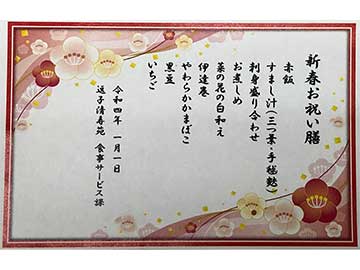 新春お祝い膳
赤飯
すまし汁(三つ葉・手毬麩)
刺身盛り合わせ
お煮しめ
菜の花の白和え
伊達巻
やわらかかまぼこ
黒豆
いちご
令和四年 一月一日
逗子清寿苑 食事サービス課